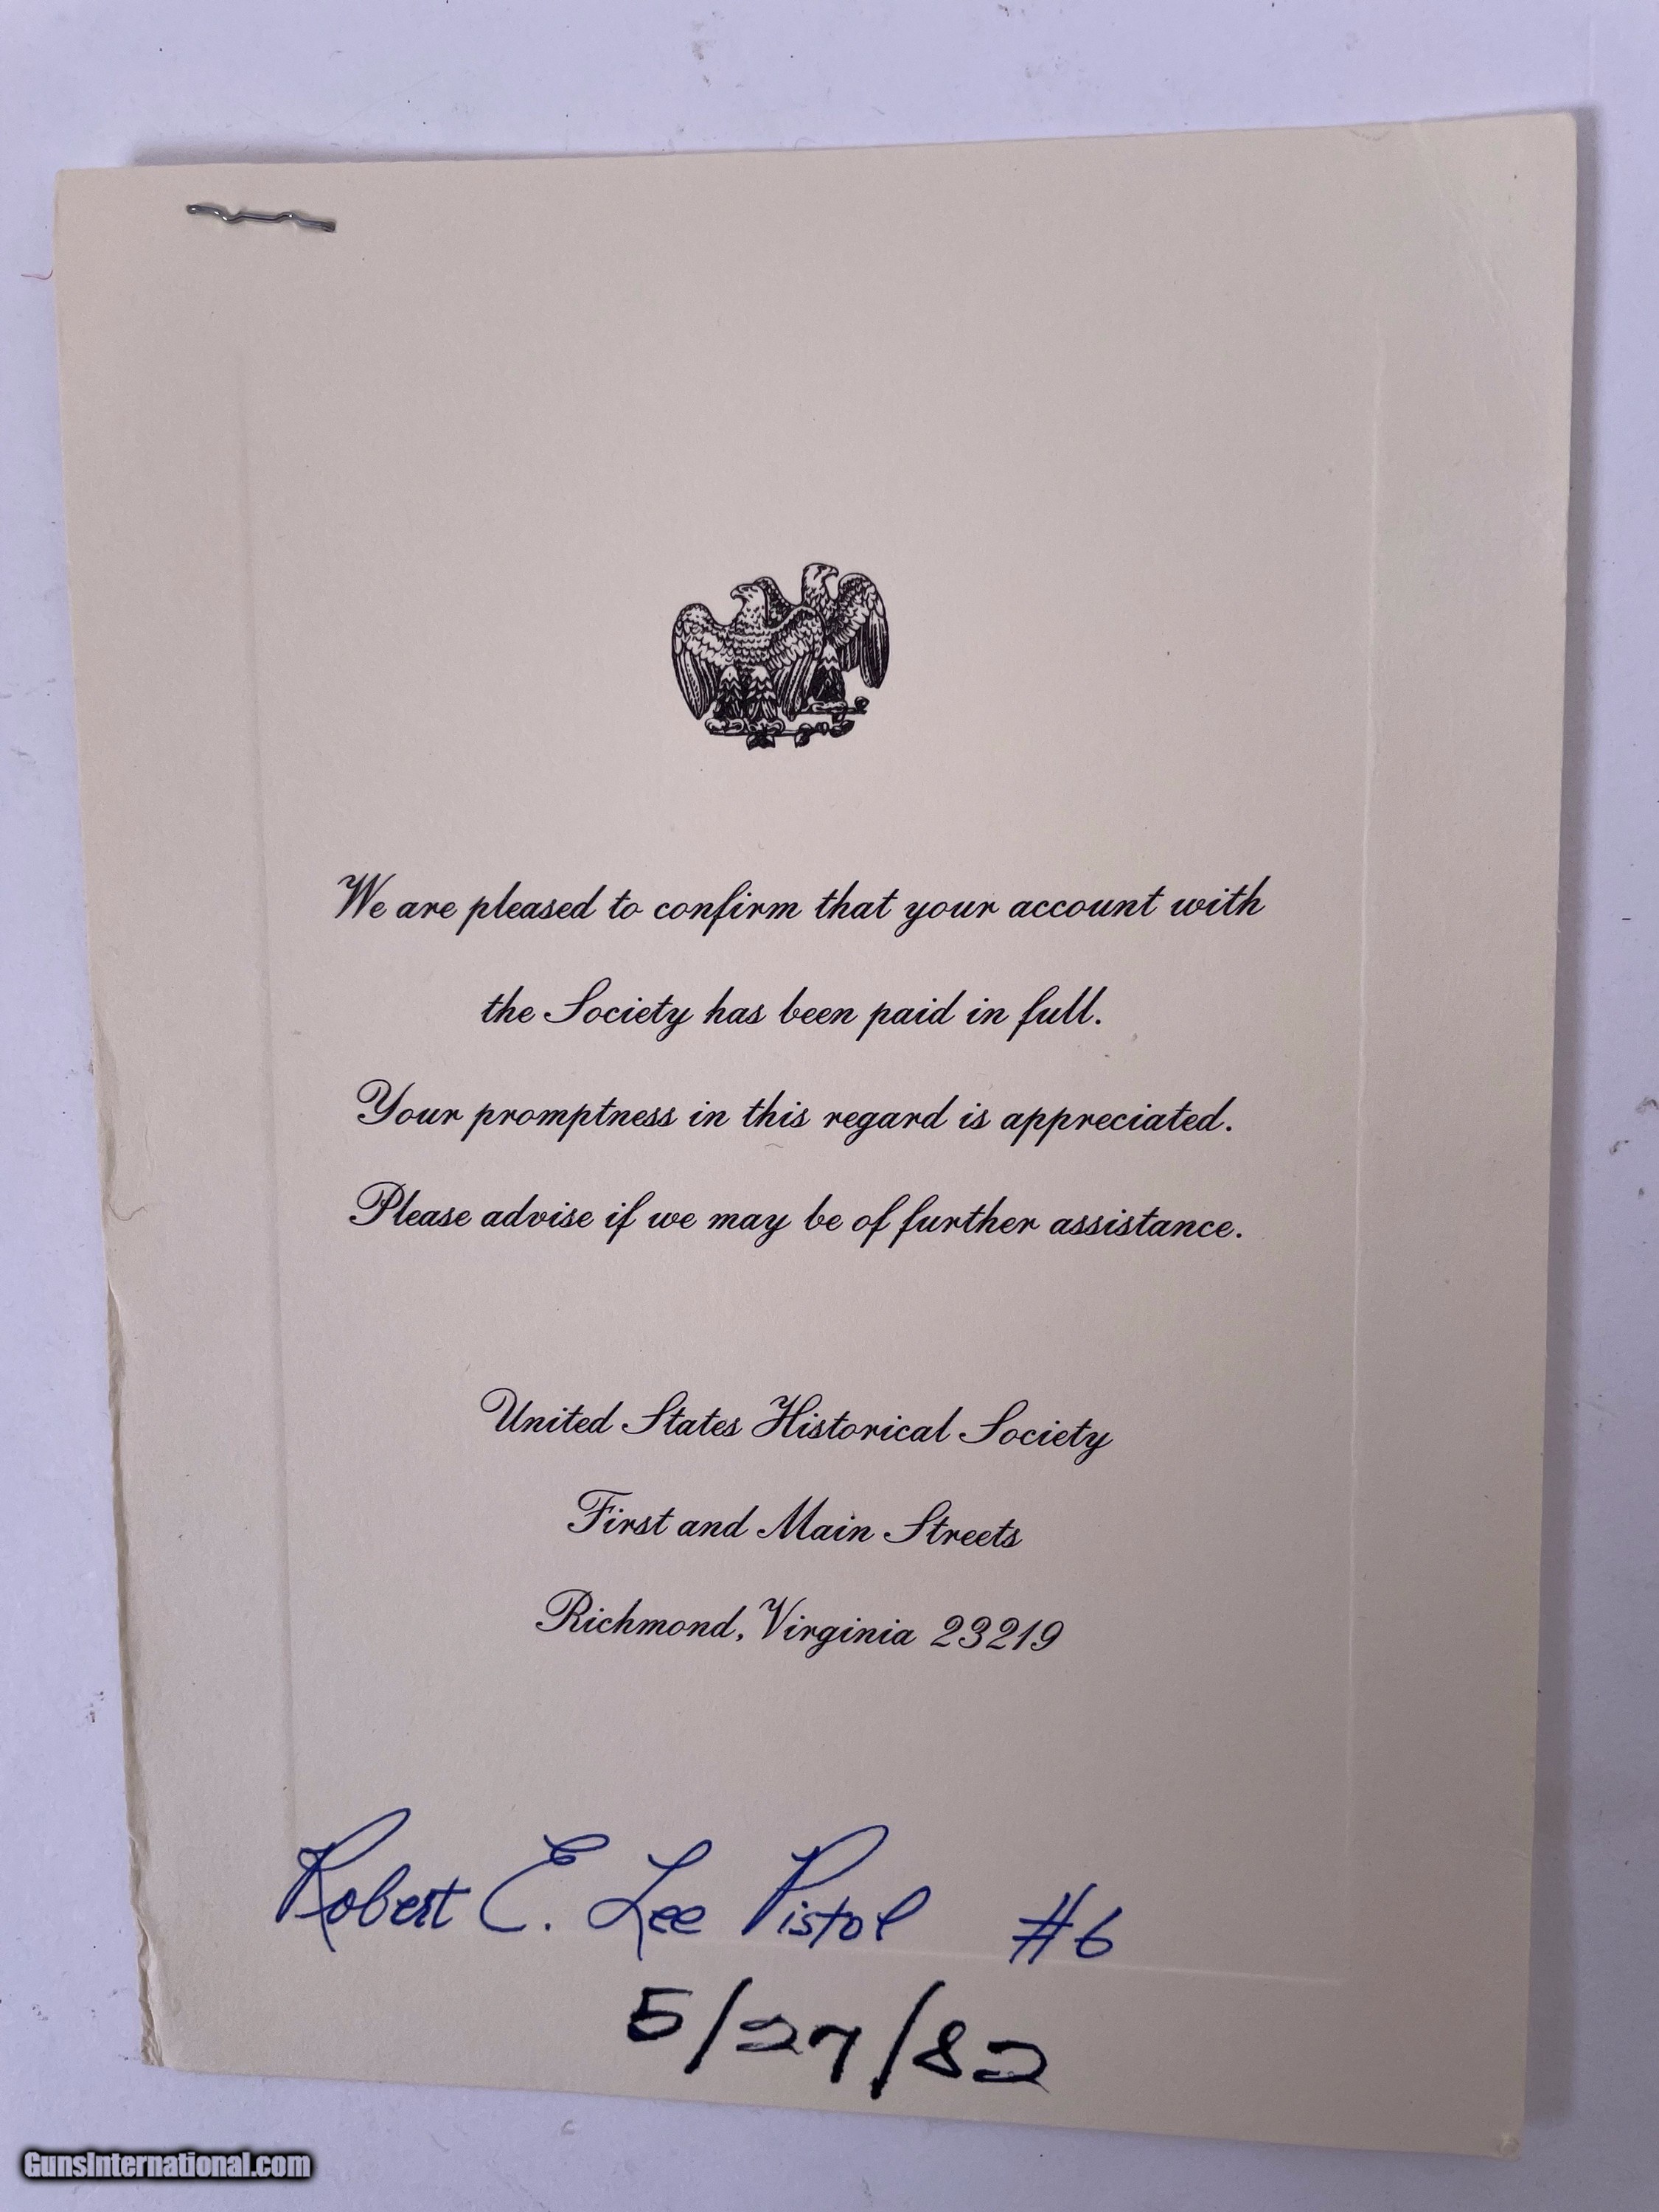 We are pleased to confirm that your account with
the Society has been paid in full.
Your promptness in this regard is appreciated.
Please advise if we may be of further assistance.
United States Historical Society
First and Main Streets
Richmond, Virginia 23219
Robert E. Lee Pistol #6
5/27/82
GunsInternational.com